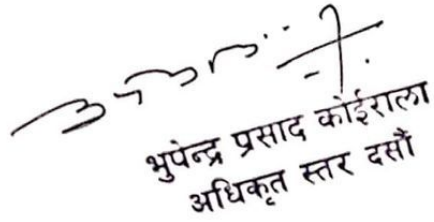 भुपेन्द्र प्रसाद कोईराला
अधिकृत स्तर दसौं